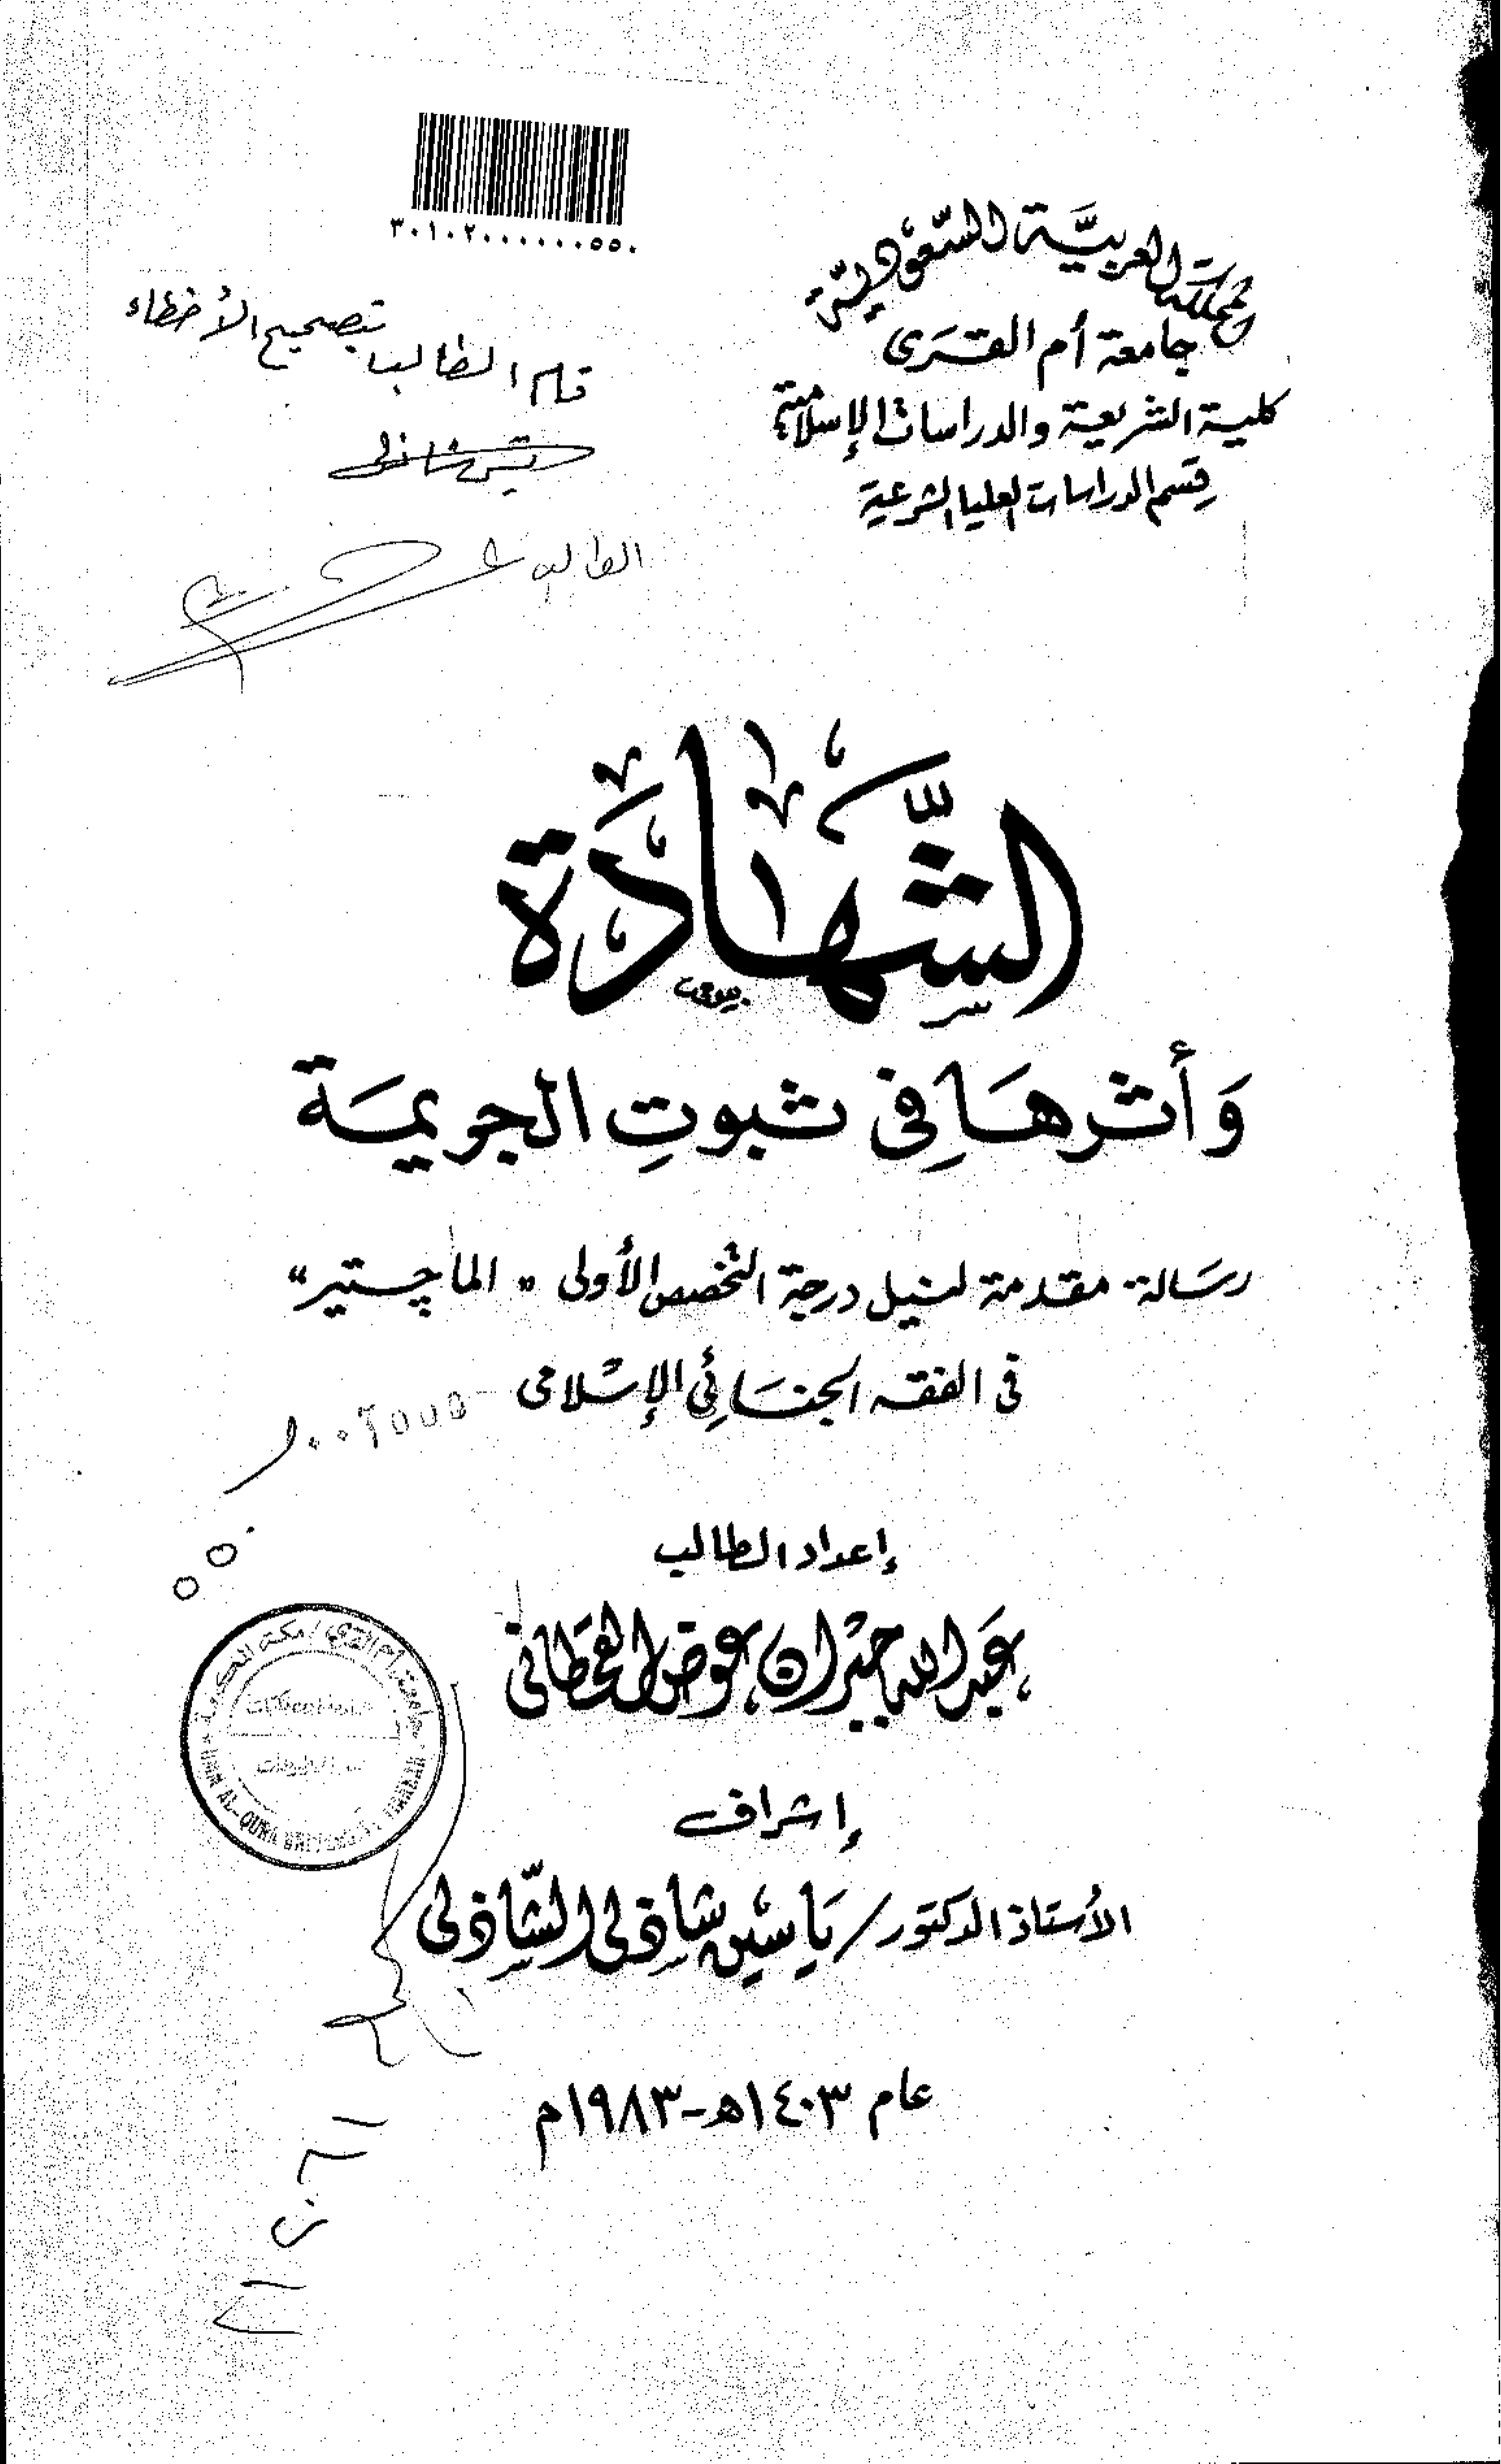 المملكة العربية السعودية
جامعة أم القرى
كلية الشريعة والدراسات الإسلامية
قسم الدراسات العليا الشرعية
٣٠١٠٢٠٠٠٠٠٠٥٥٠
قام الطالب بتصحيح الأخطاء
الطالب
الشَّهَادَة
وَأثرهَا فِى ثبوتِ الجريمَة
رسَالة مقدمة لنيل درجة التخصص الأولى " الماچستير "
فى الفقه الجنَائِي الإسْلامى
٥٥
إعداد الطالب
عَبد الله جبران عوض القحطانى
إشراف
الأستاذ الدكتور / يَاسين شاذلى الشّاذلى
عام ١٤٠٣هـ-١٩٨٣م
جامعة أم القرى / مكة المكرمة
UMM AL-QURA UNIVERSITY